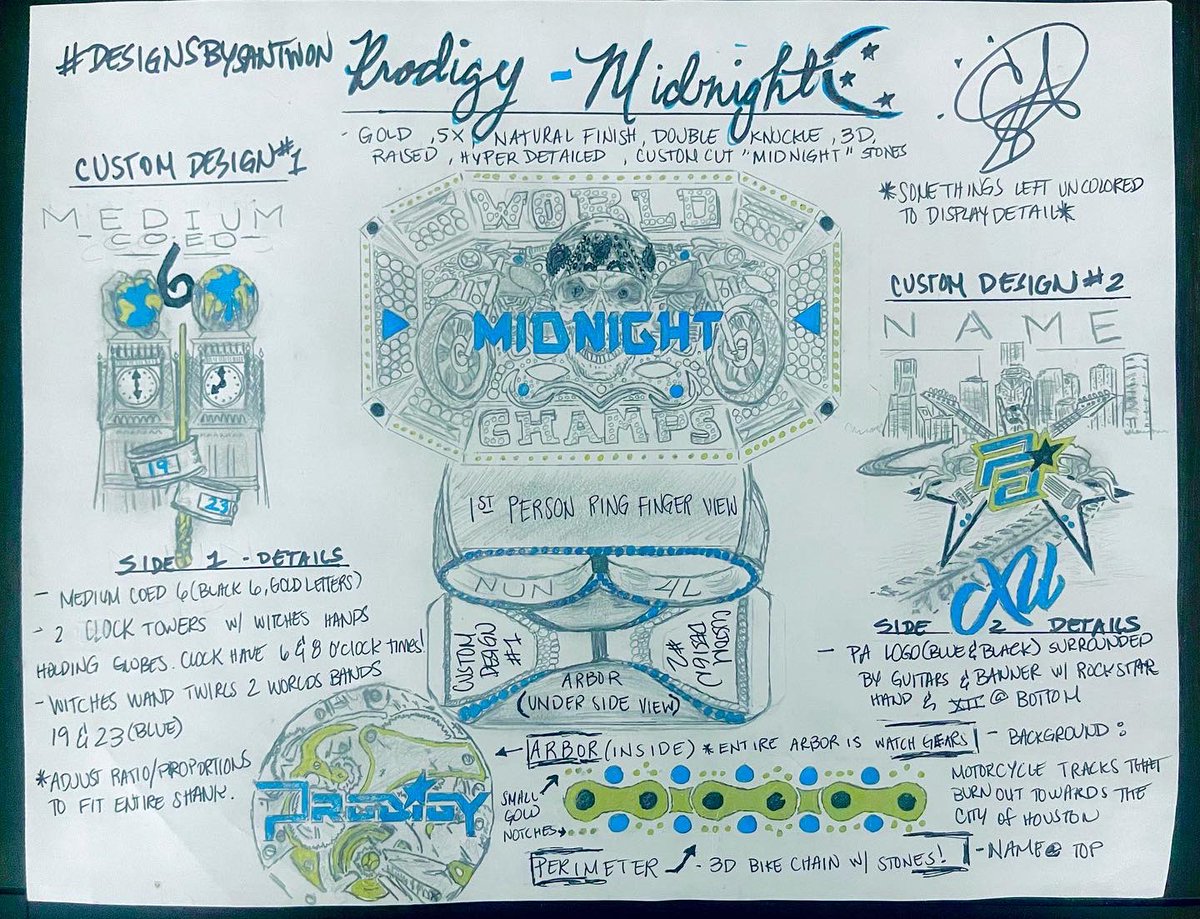 #DESIGNSBYSANTWON
Prodigy - Midnight
- GOLD, 5X, NATURAL FINISH, DOUBLE KNUCKLE, 3D,
RAISED, HYPER DETAILED, CUSTOM CUT "MIDNIGHT" STONES
*SOMETHINGS LEFT UNCOLORED
TO DISPLAY DETAIL*
CUSTOM DESIGN #1
MEDIUM
-CO.ED-
6
19
23
SIDE 1 - DETAILS
- MEDIUM COED 6 (BLACK 6, GOLD LETTERS)
- 2 CLOCK TOWERS W/ WITCHES HANDS
HOLDING GLOBES. CLOCK HAVE 6 & 8 O'CLOCK TIMES!
- WITCHES WAND TWIRLS 2 WORLDS BANDS
19 & 23 (BLUE)
*ADJUST RATIO/PROPORTIONS
TO FIT ENTIRE SHANK.
WORLD
MIDNIGHT
CHAMPS
1ST PERSON RING FINGER VIEW
NUN
4L
CUSTOM
DESIGN
#1
CUSTOM
DESIGN
#2
ARBOR
(UNDER SIDE VIEW)
CUSTOM DESIGN #2
NAME
PA
XII
SIDE 2 DETAILS
- PA LOGO (BLUE & BLACK) SURROUNDED
BY GUITARS & BANNER W/ ROCKSTAR
HAND & XII @ BOTTOM
- BACKGROUND:
MOTORCYCLE TRACKS THAT
BURN OUT TOWARDS THE
CITY OF HOUSTON
- NAME @ TOP
PRODIGY
ARBOR (INSIDE) *ENTIRE ARBOR IS WATCH GEARS
SMALL
GOLD
NOTCHES
PERIMETER - 3D BIKE CHAIN W/ STONES!